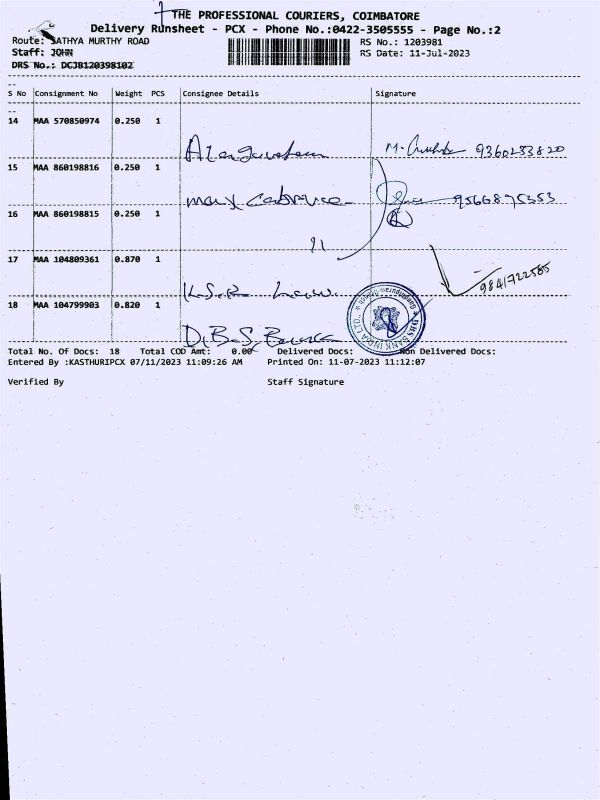 THE PROFESSIONAL COURIERS, COIMBATORE
Delivery Runsheet - PCX - Phone No.:0422-3505555 - Page No.:2
Route: SATHYA MURTHY ROAD RS No.: 1203981
Staff: JOHN RS Date: 11-Jul-2023
DRS No.: DCJB120398102
S No Consignment No Weight PCS Consignee Details Signature
14 MAA 570850974 0.250 1
9360233820
15 MAA 860198816 0.250 1
9566895353
16 MAA 860198815 0.250 1
11
17 MAA 104809361 0.870 1
K.S.R 9841722585
18 MAA 104799903 0.820 1
D.B.S.
DBS BANK INDIA LTD.
Total No. Of Docs: 18 Total COD Amt: 0.00 Delivered Docs: Non Delivered Docs:
Entered By :KASTHURIPCX 07/11/2023 11:09:26 AM Printed On: 11-07-2023 11:12:07
Verified By Staff Signature